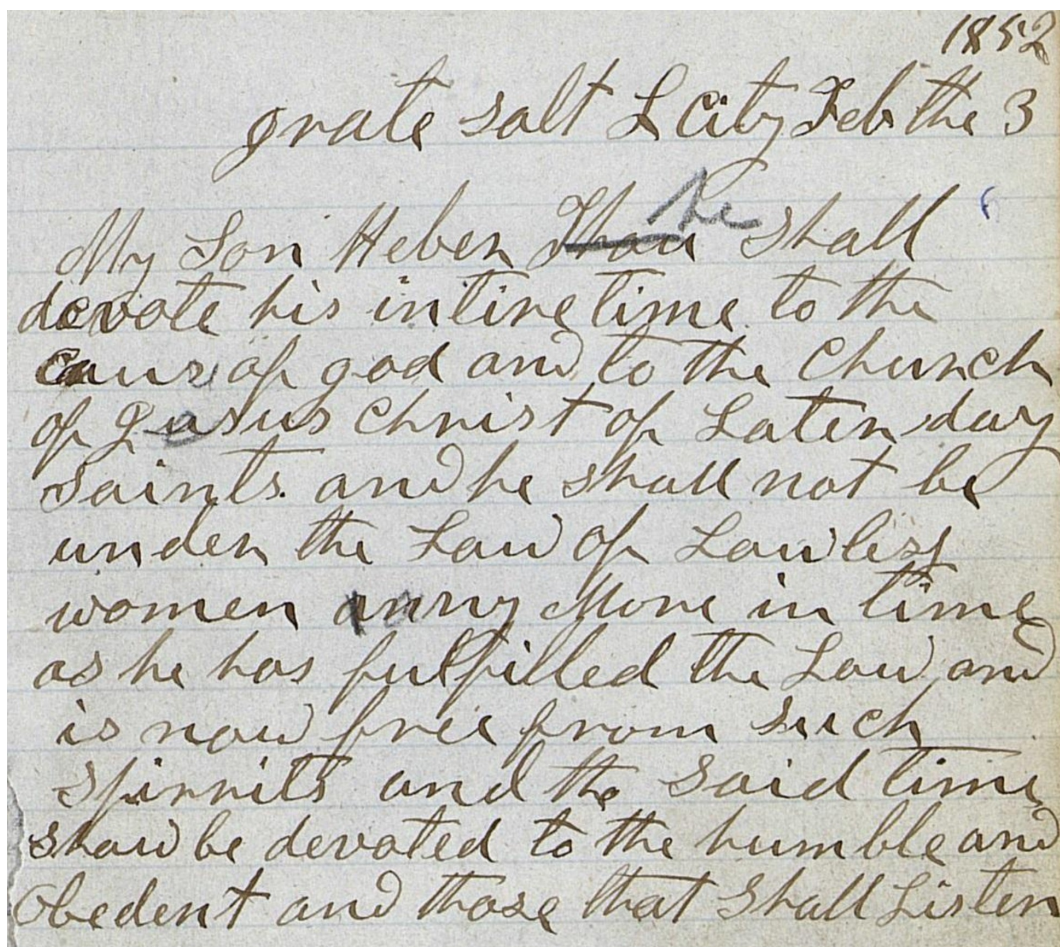 1852
grate salt L City Feb the 3
My Son Heber Thou he shall
devote his intire time to the
caus of god and to the Church
of Jesus Christ of Later day
Saints. and he shall not be
under the Law of Lawless
women anny More in time
as he has fulfilled the Law and
is now free from such
spirrits and the said time
shaw be devoted to the humble and
obedent and those that shall Listen